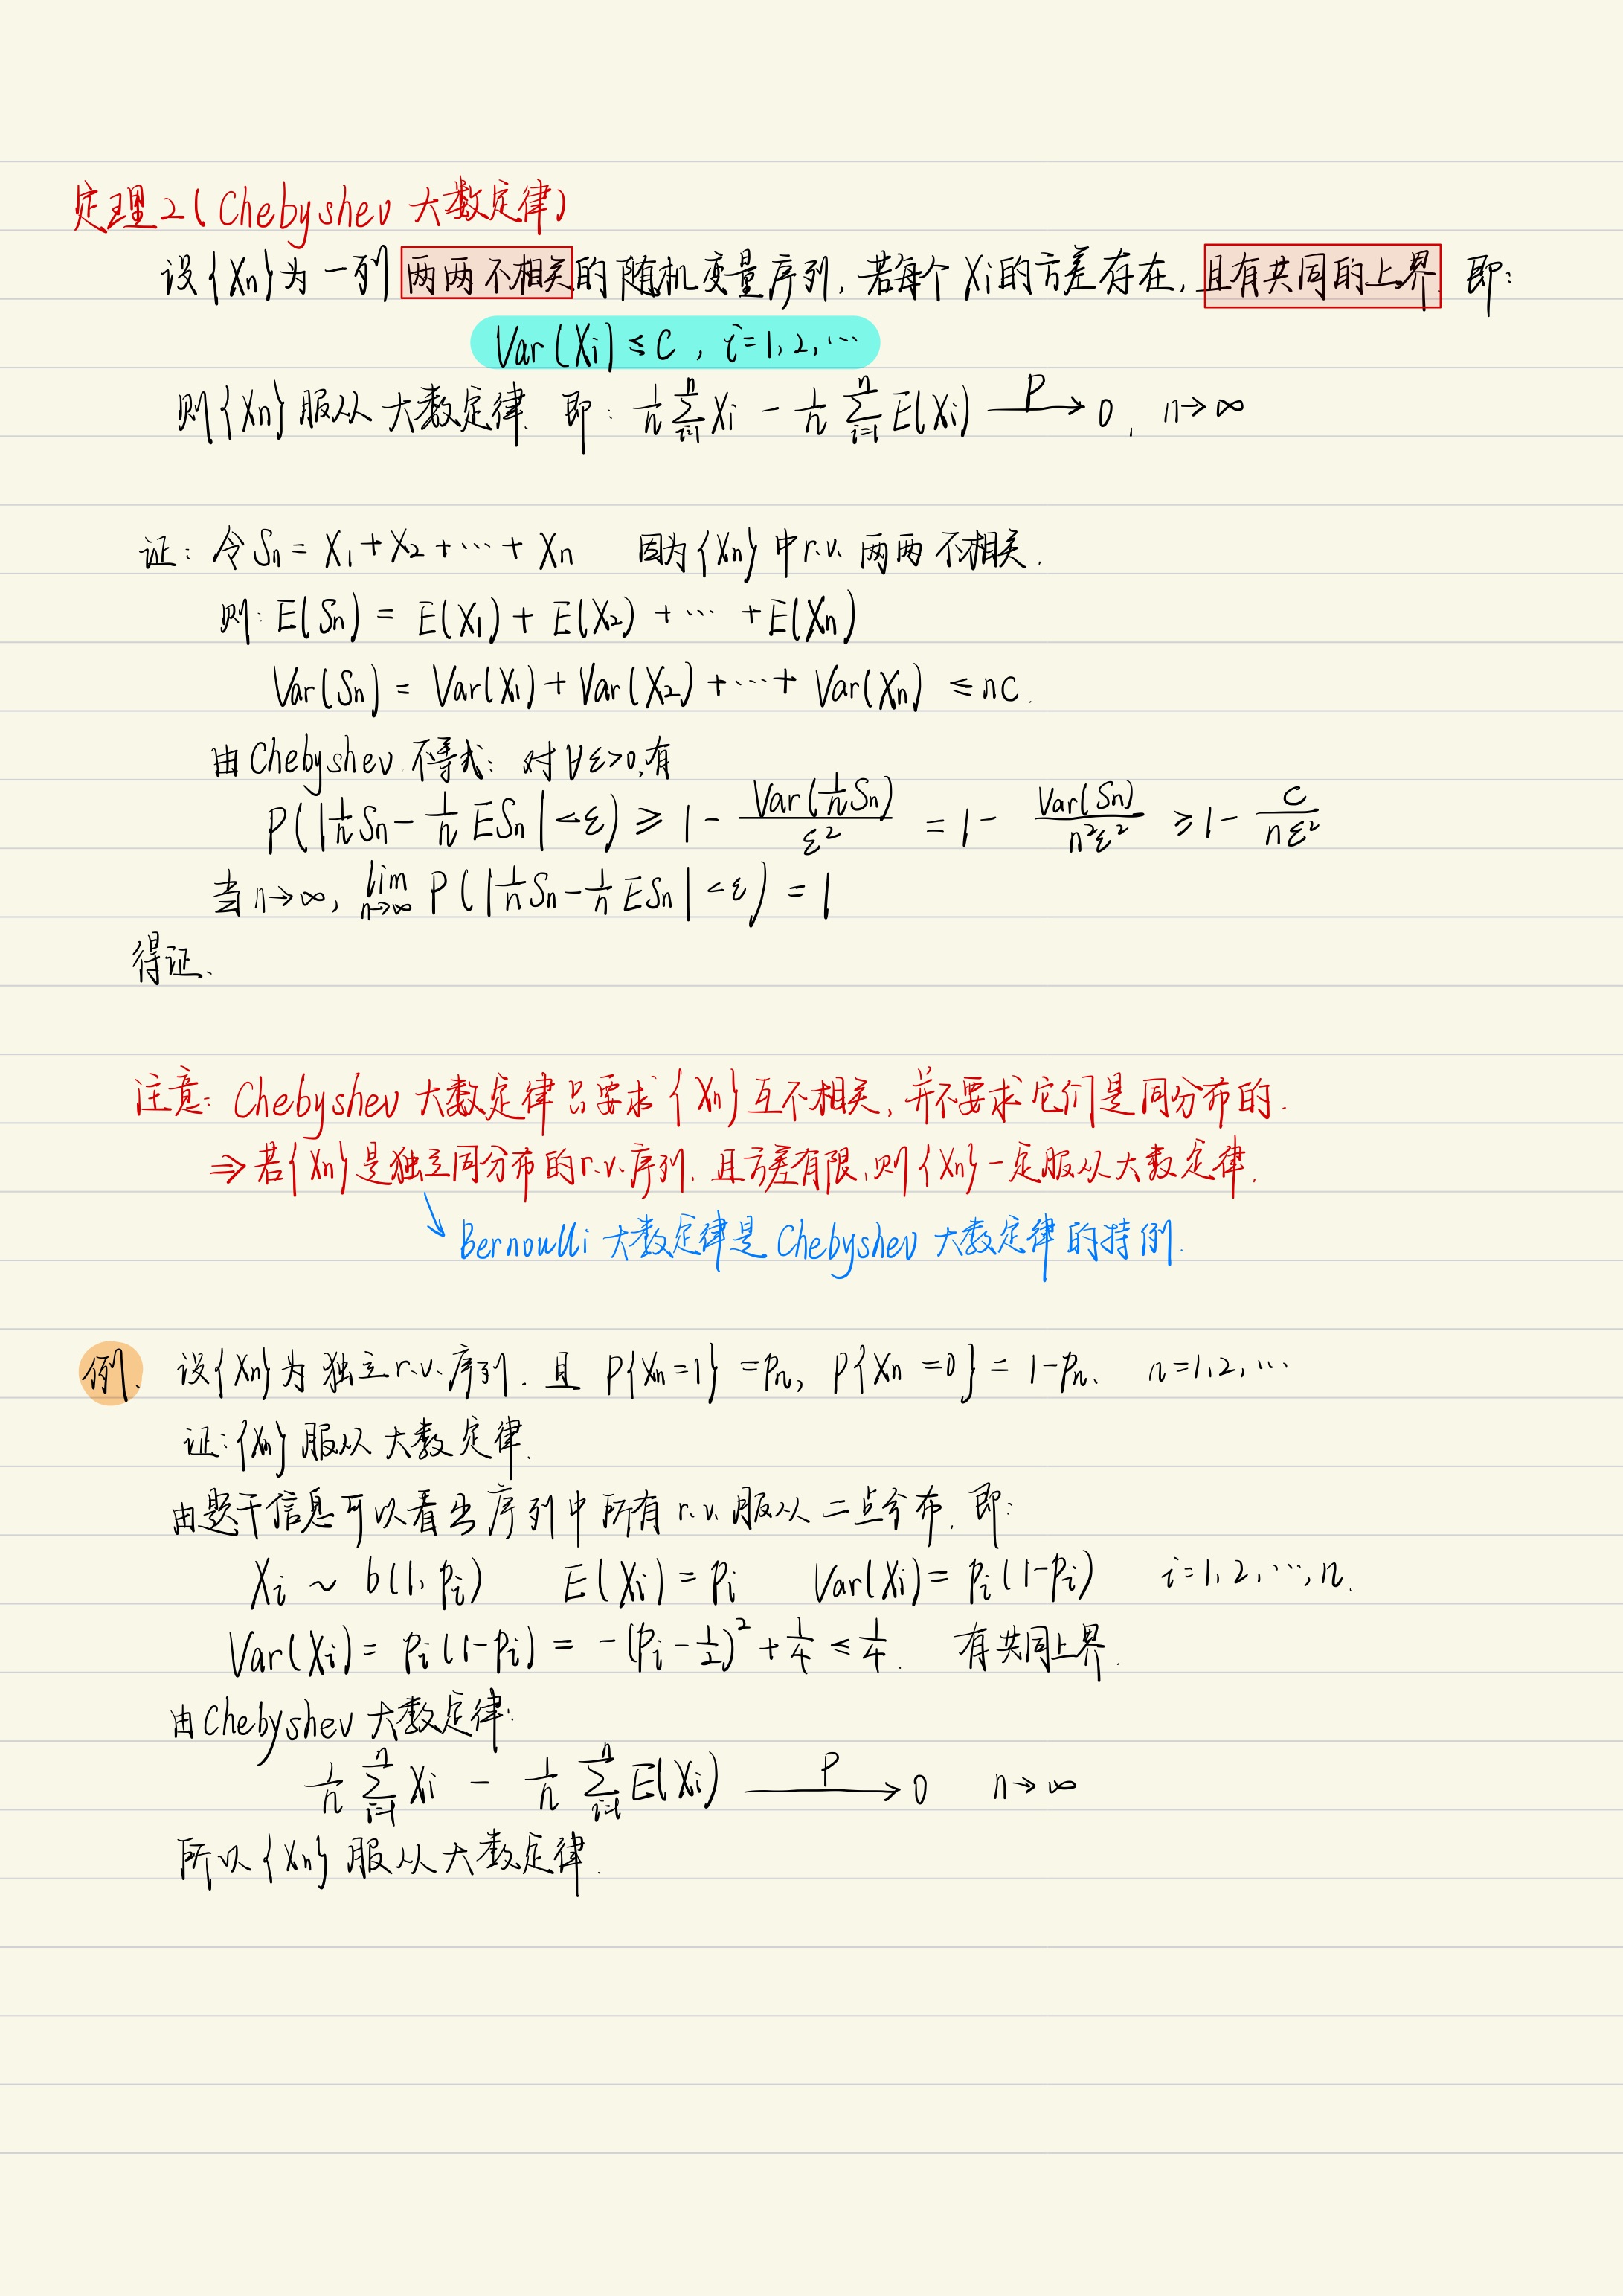 定理2（Chebyshev 大数定律）
设{Xn}为一列两两不相关的随机变量序列，若每个Xi的方差存在，且有共同的上界. 即：
Var(Xi) ≤ c , i=1,2,⋯
则{Xn}服从大数定律. 即：1/n ∑_{i=1}^{n} Xi − 1/n ∑_{i=1}^{n} E(Xi) —P→ 0 , n→∞
证：令Sn = X1+X2+⋯+Xn 因为{Xn}中r.v.两两不相关.
则：E(Sn) = E(X1)+E(X2)+⋯+E(Xn)
Var(Sn) = Var(X1)+Var(X2)+⋯+Var(Xn) ≤ nc.
由Chebyshev不等式：对∀ε>0,有
P(|1/n Sn − 1/n ESn|<ε) ≥ 1 − Var(1/n Sn)/ε² = 1 − Var(Sn)/n²ε² ≥ 1 − c/nε²
当n→∞, lim_{n→∞} P(|1/n Sn − 1/n ESn|<ε) = 1
得证.
注意：Chebyshev 大数定律只要求{Xn}互不相关，并不要求它们是同分布的.
⇒若{Xn}是独立同分布的r.v.序列，且方差有限,则{Xn}一定服从大数定律.
↘ Bernoulli 大数定律是Chebyshev 大数定律的特例.
例. 设{Xn}为独立r.v.序列. 且 P{Xn=1}=pn, P{Xn=0}=1-pn、 n=1,2,⋯
证：{Xn}服从大数定律.
由题干信息可以看出序列中所有r.v.服从二点分布. 即：
Xi ~ b(1, pi) E(Xi) = pi Var(Xi) = pi(1-pi) i=1,2,⋯,n.
Var(Xi) = pi(1-pi) = -(pi - 1/2)² + 1/4 ≤ 1/4. 有共同上界.
由Chebyshev 大数定律：
1/n ∑_{i=1}^{n} Xi − 1/n ∑_{i=1}^{n} E(Xi) —P→ 0 n→∞
所以{Xn}服从大数定律.